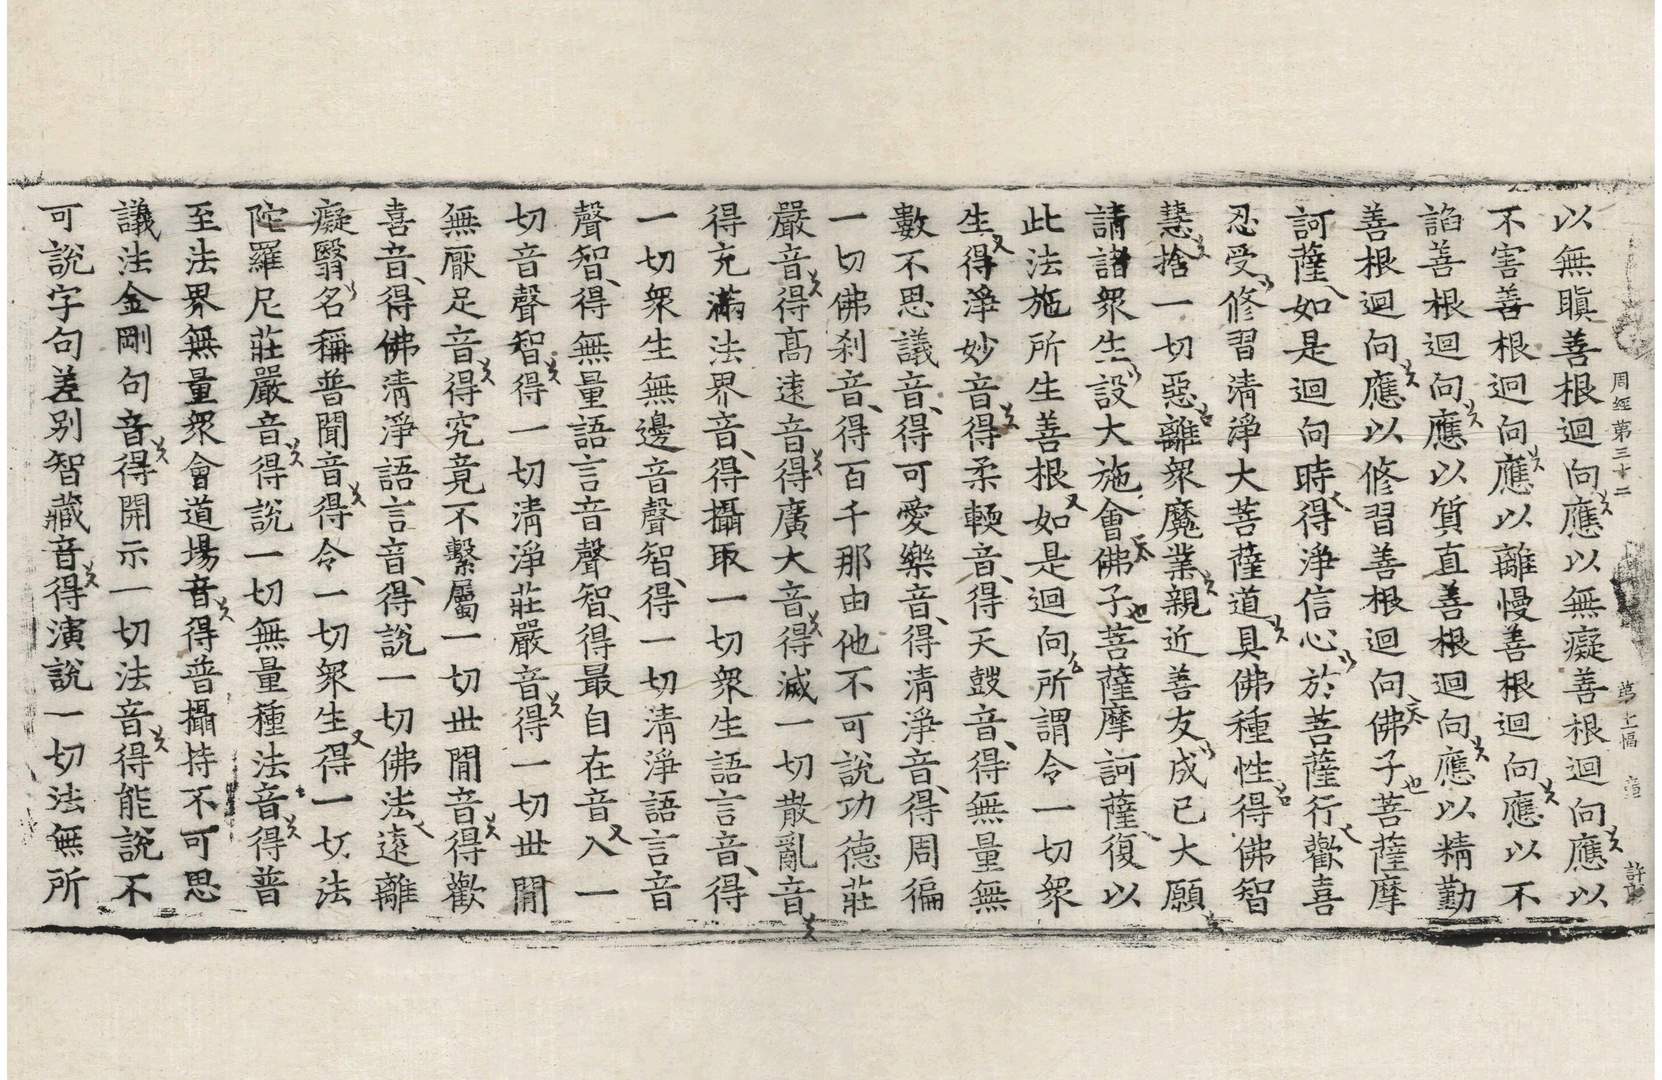 周經第三十二
以無瞋善根迴向應以無癡善根迴向應以
不害善根迴向應以離慢善根迴向應以不
諂善根迴向應以質直善根迴向應以精勤
善根迴向應以修習善根迴向佛子菩薩摩
訶薩如是迴向時得淨信心於菩薩行歡喜
忍受修習清淨大菩薩道具佛種性得佛智
慧捨一切惡離衆魔業親近善友成已大願
請諸衆生設大施會佛子菩薩摩訶薩復以
此法施所生善根如是迴向所謂令一切衆
生得淨妙音得柔輭音得天鼓音得無量無
數不思議音得可愛樂音得清淨音得周徧
一切佛刹音得百千那由他不可說功德莊
嚴音得高遠音得廣大音得滅一切散亂音
得充滿法界音得攝取一切衆生語言音得
一切衆生無邊音聲智得一切清淨語言音
聲智得無量語言音聲智得最自在音入一
切音聲智得一切清淨莊嚴音得一切世閒
無厭足音得究竟不繫屬一切世閒音得歡
喜音得佛清淨語言音得說一切佛法遠離
癡翳名稱普聞音得令一切衆生得一切法
陀羅尼莊嚴音得說一切無量種法音得普
至法界無量衆會道場音得普攝持不可思
議法金剛句音得開示一切法音得能說不
可說字句差別智藏音得演說一切法無所